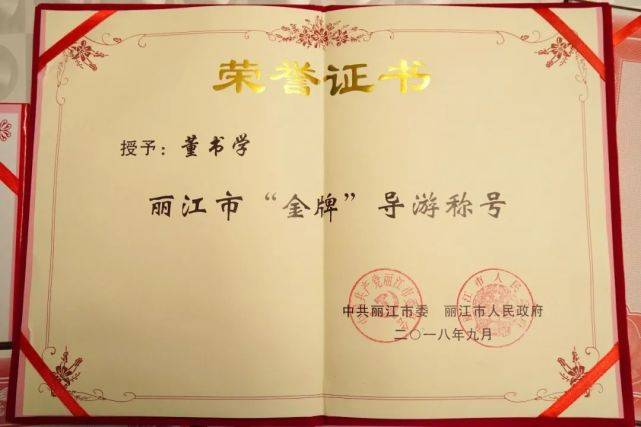 荣誉证书
授予：董书学
丽江市“金牌”导游称号
中共丽江市委 丽江市人民政府
二〇一八年九月